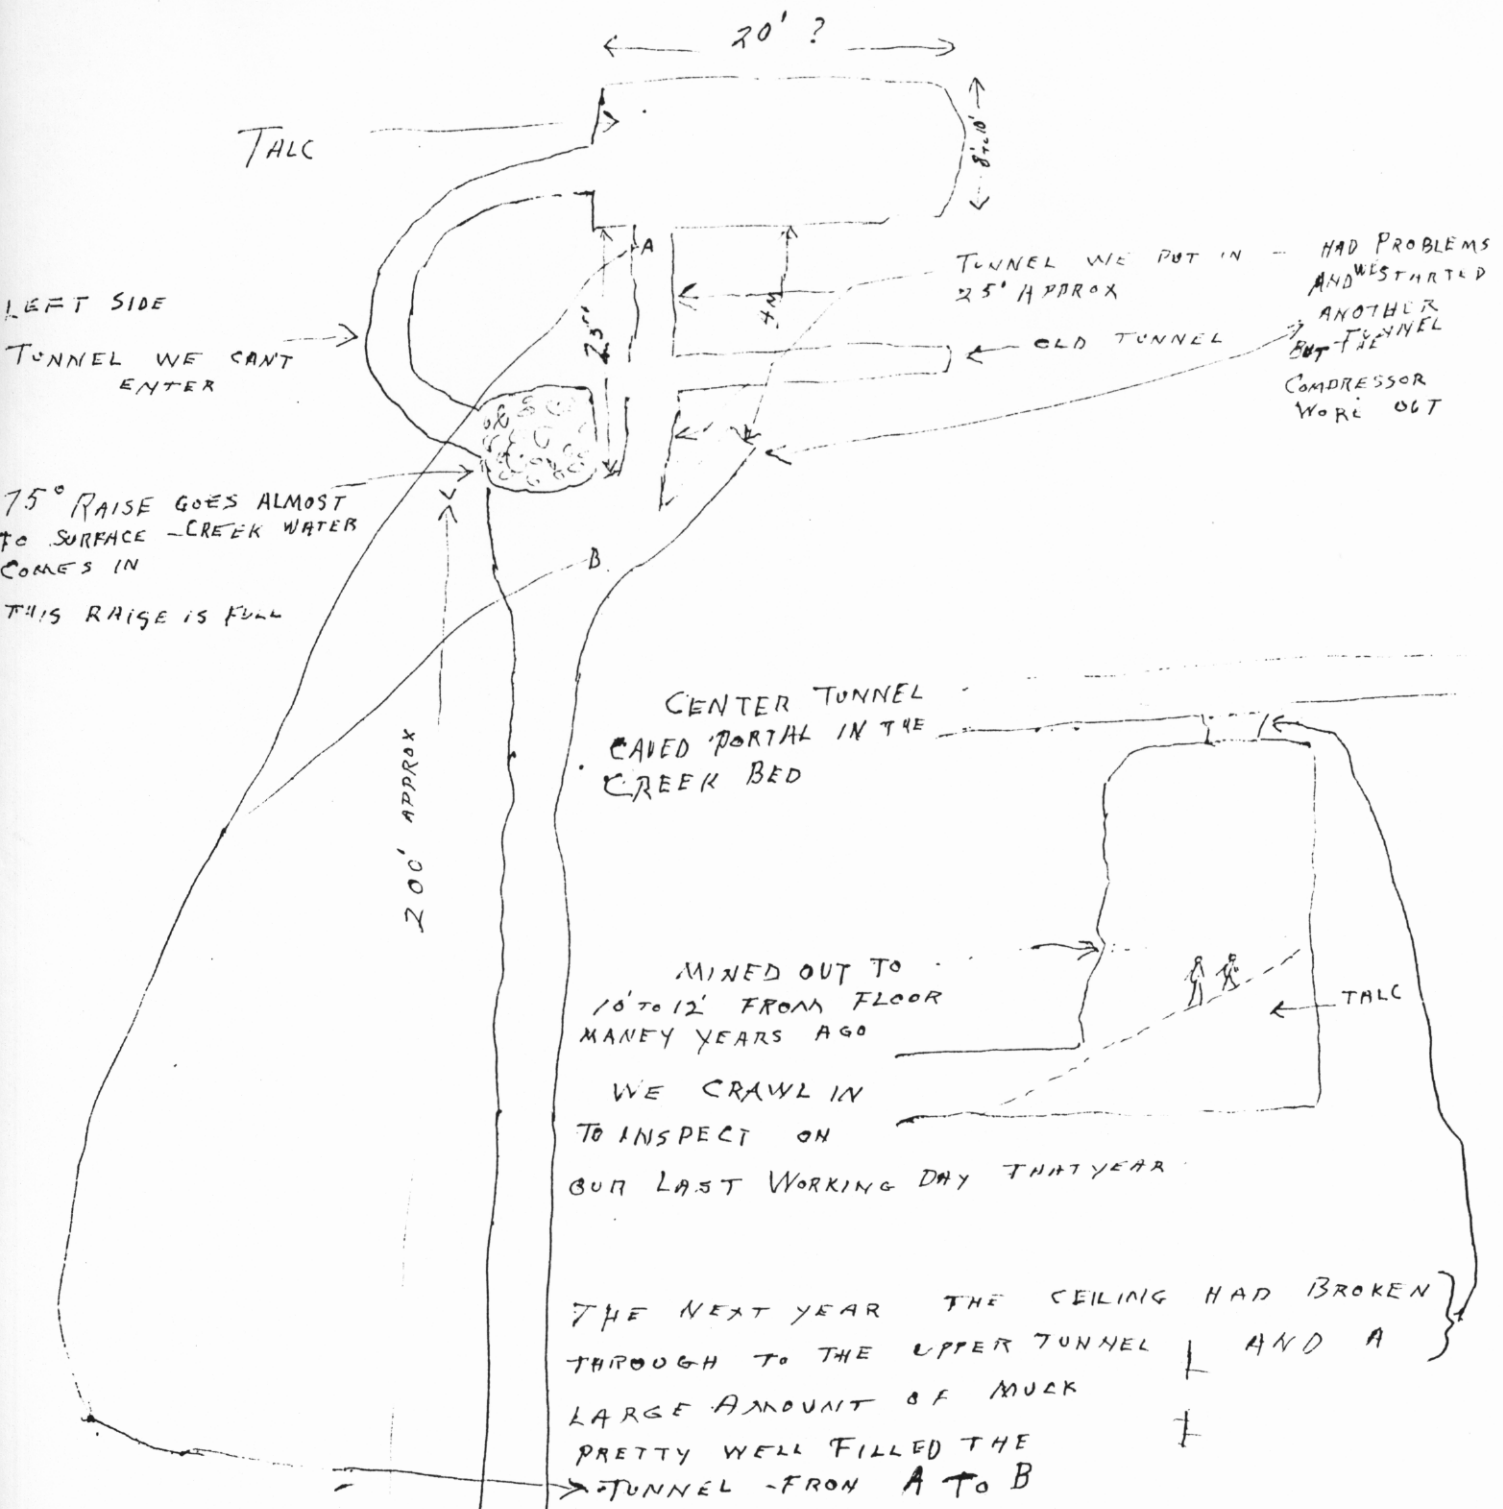 20' ?
TALC
8' to 10'
A
TUNNEL WE PUT IN - HAD PROBLEMS
25' APPROX
AND WE STARTED
ANOTHER
TUNNEL
BUT THE
COMPRESSOR
WORE OUT
LEFT SIDE
TUNNEL WE CANT
ENTER
25'
OLD TUNNEL
75° RAISE GOES ALMOST
TO SURFACE - CREEK WATER
COMES IN
THIS RAIGE IS FULL
B
200' APPROX
CENTER TUNNEL
CAVED PORTAL IN THE
CREEK BED
MINED OUT TO
10' TO 12' FROM FLOOR
MANEY YEARS AGO
TALC
WE CRAWL IN
TO INSPECT ON
OUR LAST WORKING DAY THAT YEAR
THE NEXT YEAR THE CEILING HAD BROKEN
THROUGH TO THE UPPER TUNNEL AND A
LARGE AMOUNT OF MUCK
PRETTY WELL FILLED THE
TUNNEL - FROM A TO B